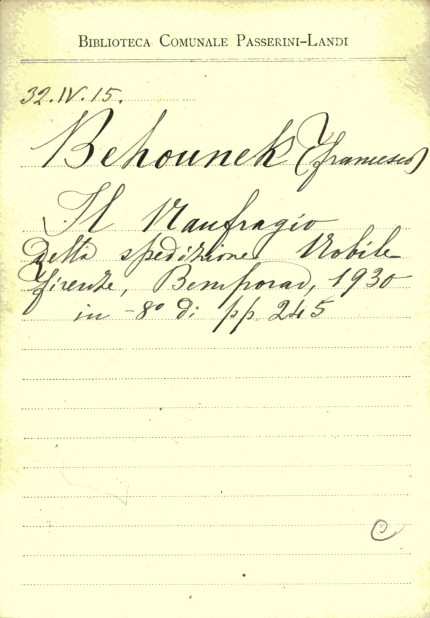 BIBLIOTECA COMUNALE PASSERINI-LANDI
32.IV.15.
Behounek (Francesco)
Il Naufragio
Della spedizione Nobile
Firenze, Bemporad, 1930
in -8º di pp. 245
C